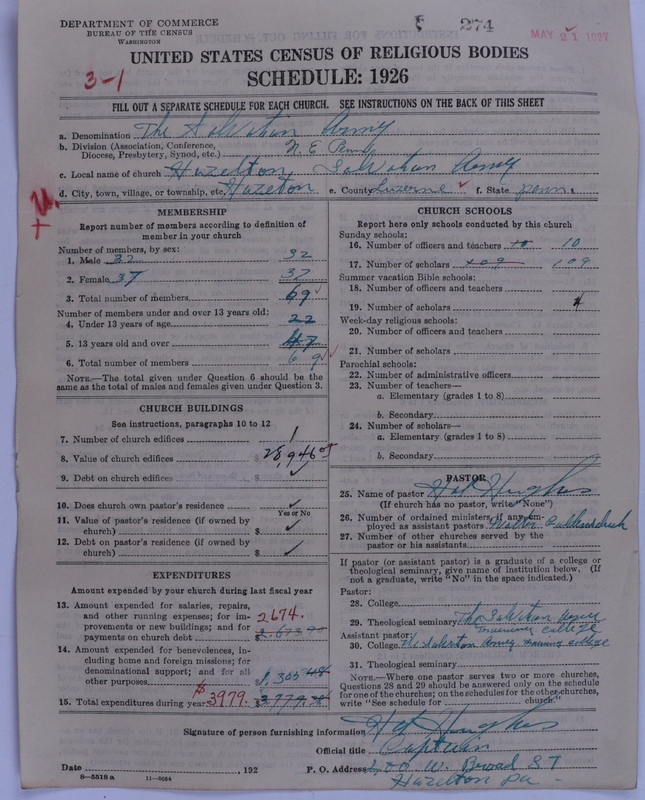 DEPARTMENT OF COMMERCE
BUREAU OF THE CENSUS
WASHINGTON
F 274
MAY 21 1927
UNITED STATES CENSUS OF RELIGIOUS BODIES
3-1
SCHEDULE: 1926
FILL OUT A SEPARATE SCHEDULE FOR EACH CHURCH. SEE INSTRUCTIONS ON THE BACK OF THIS SHEET
a. Denomination The Salvation Army
b. Division (Association, Conference, Diocese, Presbytery, Synod, etc.) N. E. Penn
c. Local name of church Hazelton Salvation Army
d. City, town, village, or township, etc. Hazelton e. County Luzerne f. State penn
MEMBERSHIP
Report number of members according to definition of
member in your church
Number of members, by sex:
1. Male 32 32
2. Female 37 37
3. Total number of members 69
Number of members under and over 13 years old:
4. Under 13 years of age 22
5. 13 years old and over 47
6. Total number of members 69
NOTE.—The total given under Question 6 should be the
same as the total of males and females given under Question 3.
CHURCH BUILDINGS
See instructions, paragraphs 10 to 12
7. Number of church edifices 1
8. Value of church edifices $ 28,946
9. Debt on church edifices $
10. Does church own pastor's residence
Yes or No
11. Value of pastor's residence (if owned by
church) $
12. Debt on pastor's residence (if owned by
church) $
EXPENDITURES
Amount expended by your church during last fiscal year
13. Amount expended for salaries, repairs,
and other running expenses; for im-
provements or new buildings; and for
payments on church debt 2674.
14. Amount expended for benevolences, in-
cluding home and foreign missions; for
denominational support; and for all
other purposes $ 1,305
15. Total expenditures during year $3979.
CHURCH SCHOOLS
Report here only schools conducted by this church
Sunday schools:
16. Number of officers and teachers 10 10
17. Number of scholars 109 109
Summer vacation Bible schools:
18. Number of officers and teachers
19. Number of scholars
Week-day religious schools:
20. Number of officers and teachers
21. Number of scholars
Parochial schools:
22. Number of administrative officers
23. Number of teachers—
a. Elementary (grades 1 to 8)
b. Secondary
24. Number of scholars—
a. Elementary (grades 1 to 8)
b. Secondary
PASTOR
25. Name of pastor Hughes
(If church has no pastor, write "None")
26. Number of ordained ministers, if any, em-
ployed as assistant pastors Walter
27. Number of other churches served by the
pastor or his assistants
If pastor (or assistant pastor) is a graduate of a college or
theological seminary, give name of institution below, (If
not a graduate, write "No" in the space indicated.)
Pastor:
28. College
29. Theological seminary The Salvation Army
Training College
Assistant pastor:
30. College The Salvation Army training college
31. Theological seminary
NOTE.—Where one pastor serves two or more churches,
Questions 28 and 29 should be answered only on the schedule
for one of the churches; on the schedules for the other churches,
write "See schedule for church."
Signature of person furnishing information Hughes
Official title Captain
Date , 192 P. O. Address W. Broad ST
Hazelton Pa
8-5518a 11-5054